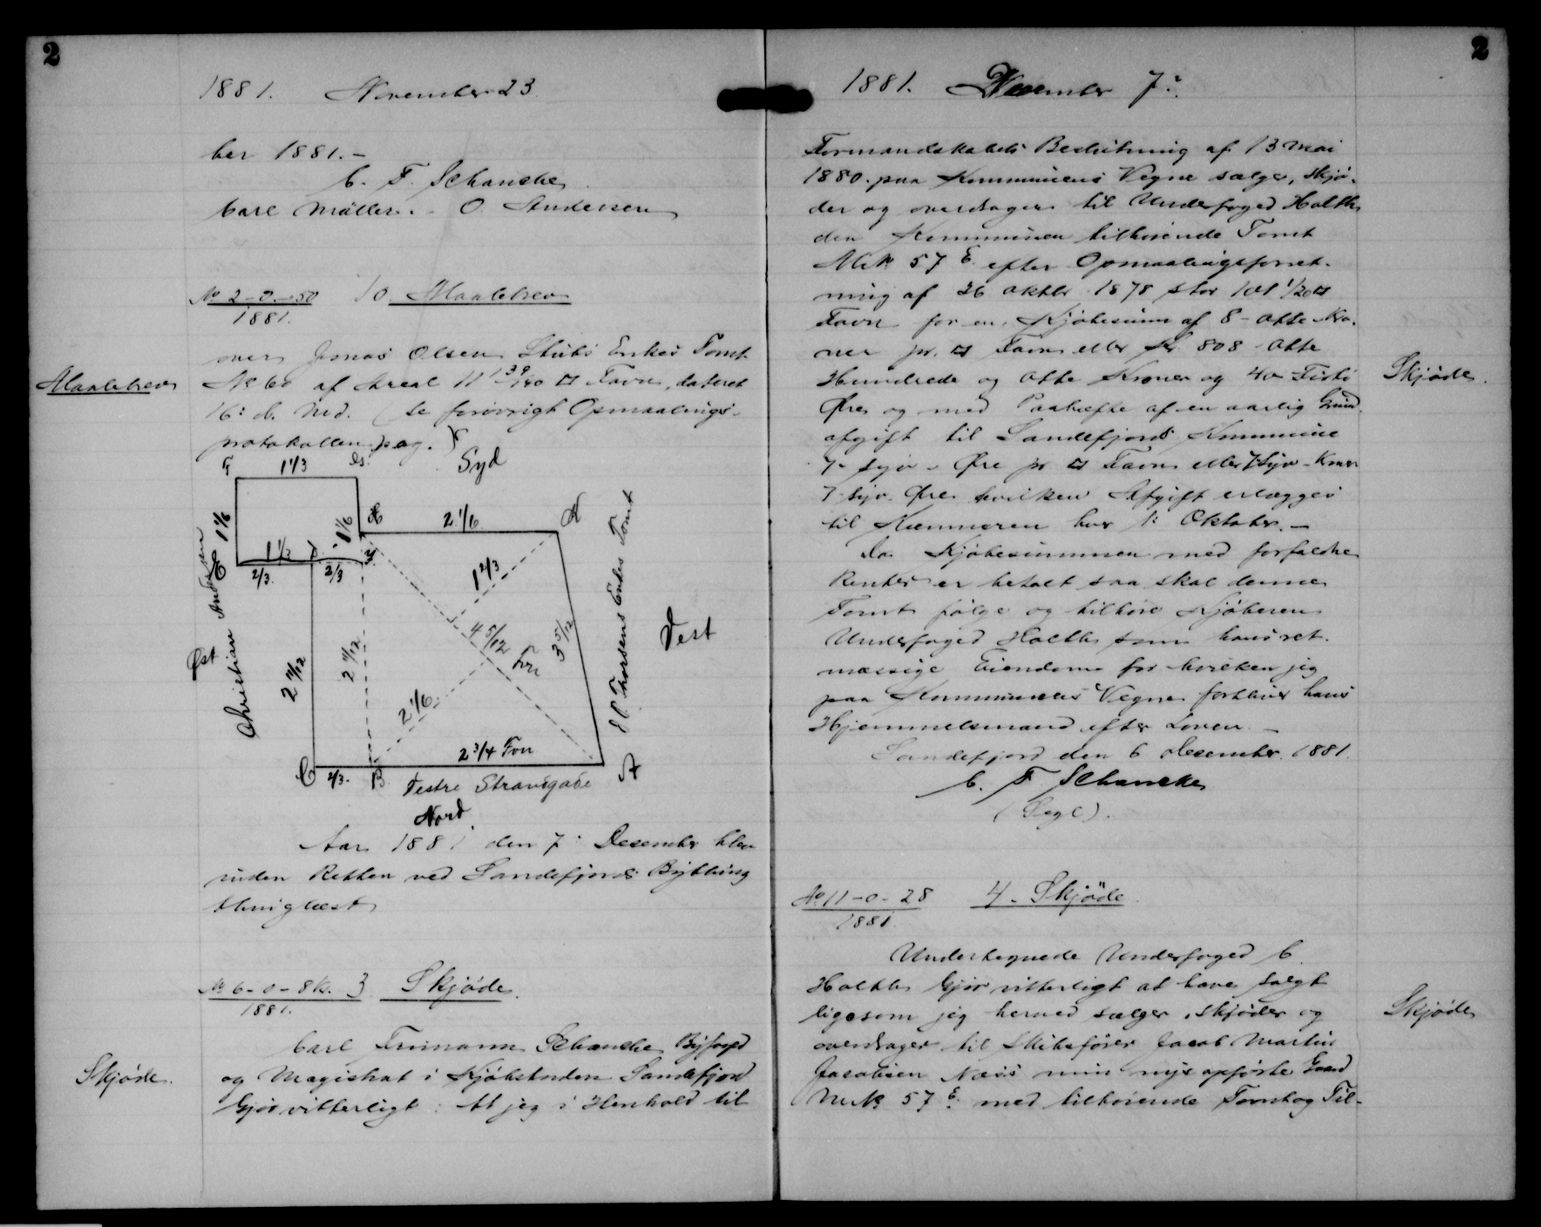 2
1881. November 23.
ber 1881.-
C. F. Schancke.
Carl Møller. - O. Andersen
No 2-0-50
1881.
10 Maalebrev
over Jonas Olsen Enkes Tomt
No 60 af Areal 11 139/140 □ Favn, dateret
16: d. Md. (se forøvrigt Opmaalings-
protokollen pag. )
Maalebrev
F 1 1/3 Syd
H 2 1/6
E 1 1/6 1 1/6
1 1/3
2/3 2/3
1 2/3
4 5/12
3 5/12
Øst
Christian Andersen
2 11/12 2 11/12
2 1/6
Thorsens Enkes Tomt
Vest
2 3/4 Fvn
C 2/3 B. Vestre Strandgade A
Nord
Aar 1881 den 7: Desember blev
inden Retten ved Sandefjords Bything
thinglæst
No 6-0-84.
1881.
3 Skjøde.
Carl Schancke Byfoged
og Magistrat i Kjøbstaden Sandefjord
Gjør vitterligt: At jeg i Henhold til
Skjøde.
2
1881. Desember 7:
Formandskabets Beslutning af 13 Mai
1880. paa Kommunens Vegne sælger, skjø-
der og overdrager til Underfoged Holth
den Kommunen tilhørende Tomt
Mk 57 E efter Opmaalingsforret-
ning af 26 Oktbr 1878 stor 101 1/20 □
Favn for en Kjøbesum af 8 - otte Kro-
ner pr. □ Favn eller Kr 808 - Otte
Hundrede og Otte Kroner og 40 Firti
Øre og med Paahefte af en aarlig Grund
afgift til Sandefjords Kommune
7- syv - Øre pr □ Favn eller 7 Syv - Kroner
7 - Syv - Øre hvilken Afgift erlægges
til Kæmneren hver 1: Oktober. -
Da Kjøbesummen med forfaldne
Renter er betalt saa skal denne
Tomt følge og tilhøre Kjøberen
Underfoged Holth som hans ret-
mæssige Eiendom for hvilken jeg
paa Kommunens Vegne forbliver hans
Hjemmelsmand efter Loven. -
Sandefjord den 6 Desember 1881.
C. F Schancke
(Segl).
Skjøde.
No 11-0-28
1881
4. Skjøde.
Undertegnede Underfoged C.
Holth Gjør vitterligt at have solgt
ligesom jeg herved sælger, skjøder og
overdrager til Skibsfører Jacob Martin
Jacobsen Næss min nye opførte Gaard
Mk 57 E med tilhørende Tomt og Til-
Skjøde